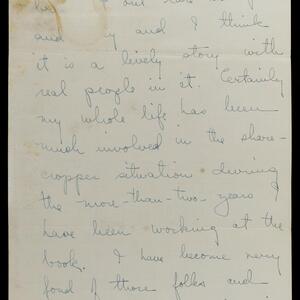 and I think
it is a lively story with
real people in it. Certainly
my whole life has been
much involved in the share-
cropper situation during
the more-than-two-years I
have been working at the
book. I have become very
fond of those folks and